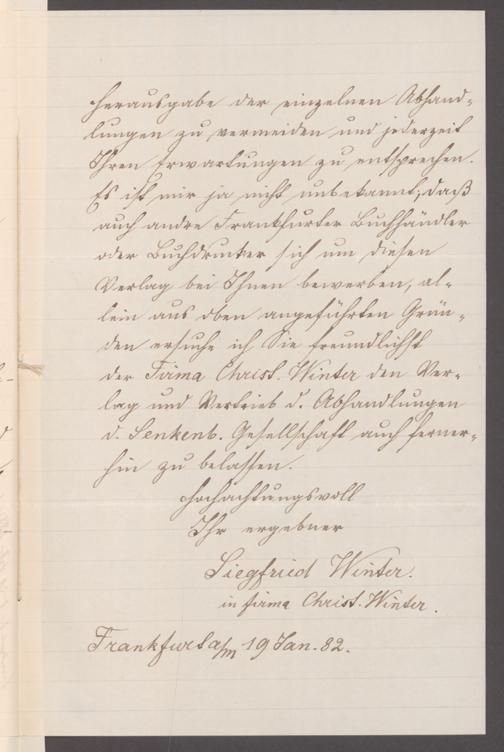 Herausgabe der einzelnen Abhand-
lungen zu vermeiden und jederzeit
Ihren Erwartungen zu entsprechen.
Es ist mir ja nicht unbekannt, daß
auch andre Frankfurter Buchhändler
oder Buchdrucker sich um diesen
Verlag bei Ihnen bewerben, al-
lein aus oben angeführten Grün-
den ersuche ich Sie freundlichst
der Firma Christ. Winter den Ver-
lag und Vertrieb d. Abhandlungen
d. Senkenb. Gesellschaft auch ferner-
hin zu belassen.
Hochachtungsvoll
Ihr ergebner
Siegfried Winter.
in firma Christ. Winter.
Frankfurt a/m 19 Jan. 82.